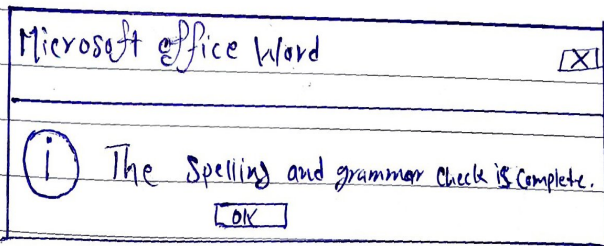 Microsoft office Word
X
i The Spelling and grammar check is complete.
OK